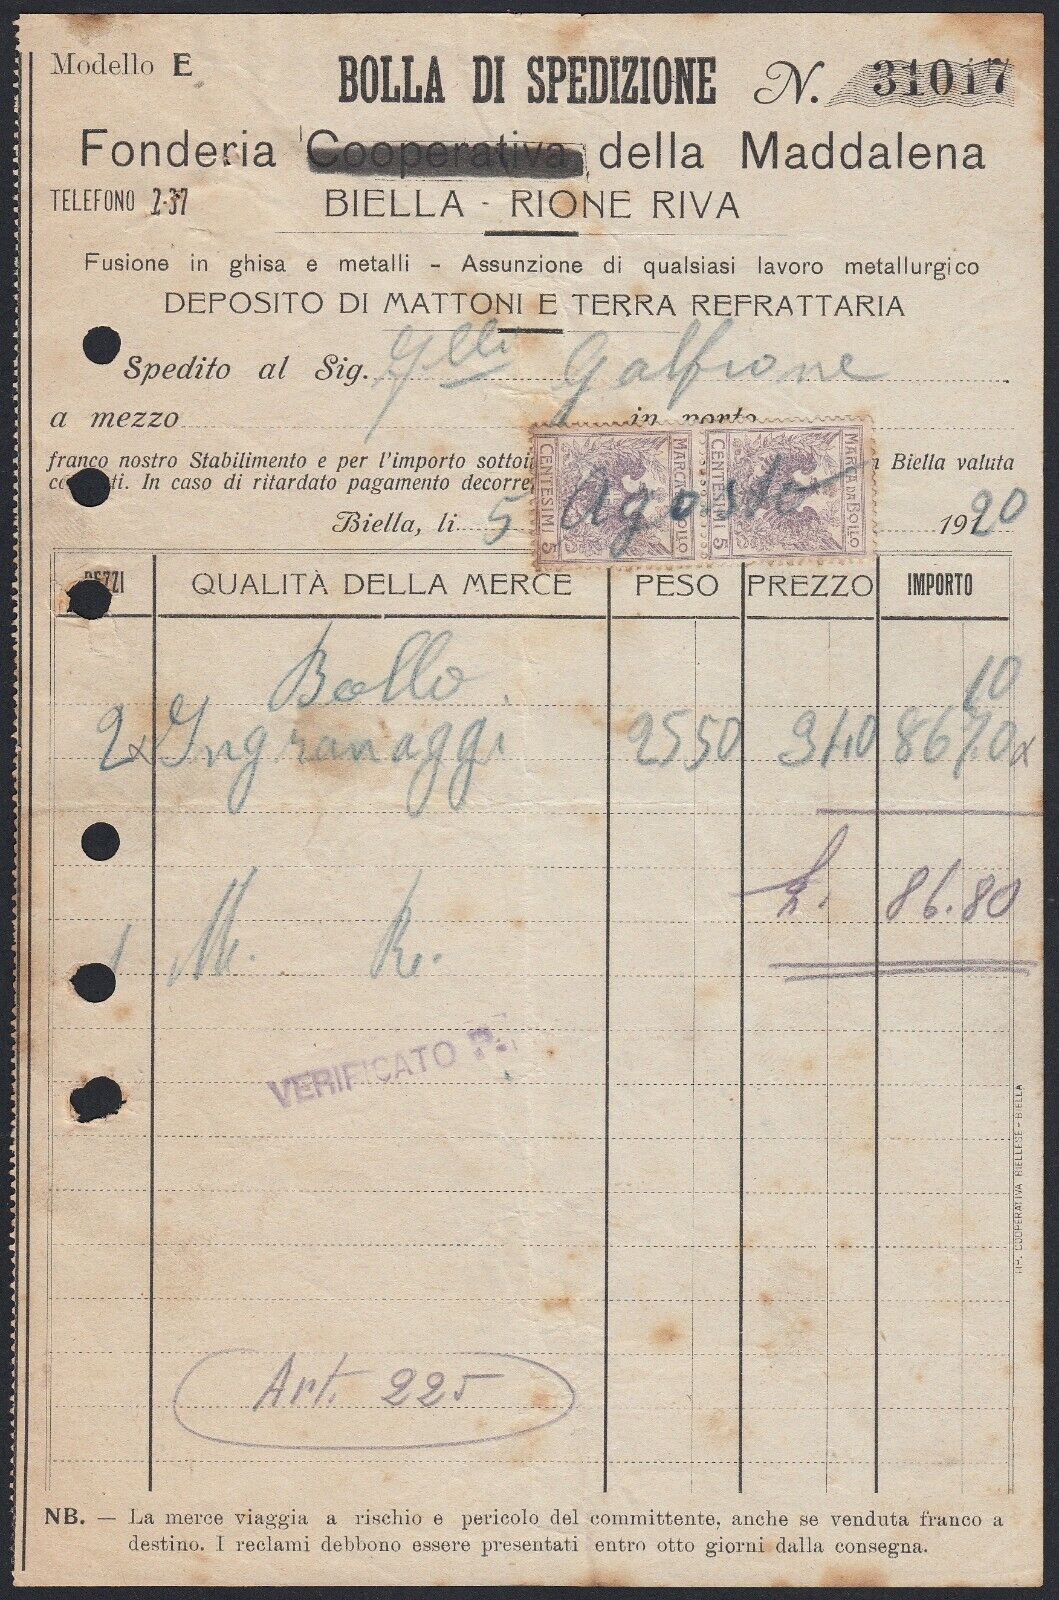 Modello E
BOLLA DI SPEDIZIONE N. 31017
Fonderia Cooperativa della Maddalena
TELEFONO 2-37
BIELLA - RIONE RIVA
Fusione in ghisa e metalli - Assunzione di qualsiasi lavoro metallurgico
DEPOSITO DI MATTONI E TERRA REFRATTARIA
Spedito al Sig. Flli Galfione
a mezzo
franco nostro Stabilimento e per l'importo sottoi Biella valuta
ti. In caso di ritardato pagamento decorre
CENTESIMI 5 MARCA DA BOLLO CENTESIMI 5 MARCA DA BOLLO
Biella, li 5 Agosto 1920
PEZZI QUALITÀ DELLA MERCE PESO PREZZO IMPORTO
Bollo 10
2 Ingranaggi 2550 340 8670
L. 86.80
1 M. R.
VERIFICATO
Art. 225
TIP. COOPERATIVA BIELLESE - BIELLA
NB. — La merce viaggia a rischio e pericolo del committente, anche se venduta franco a
destino. I reclami debbono essere presentati entro otto giorni dalla consegna.